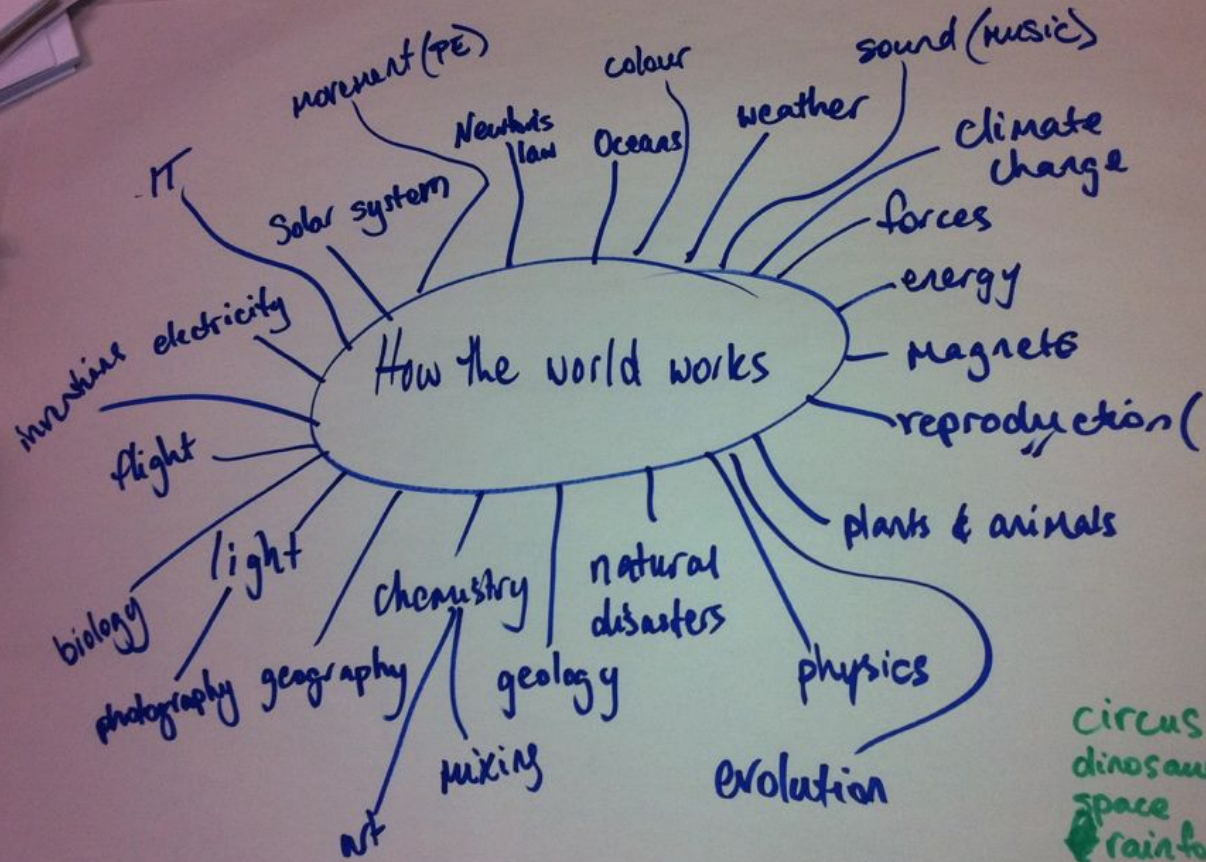 How the world works
IT
Solar system
movement (PE)
Newton's
law
Oceans
colour
weather
sound (music)
climate
change
forces
energy
magnets
reproduction (
plants & animals
evolution
physics
natural
disasters
geology
chemistry
mixing
art
geography
light
photography
biology
flight
inventions
electricity
circus
space